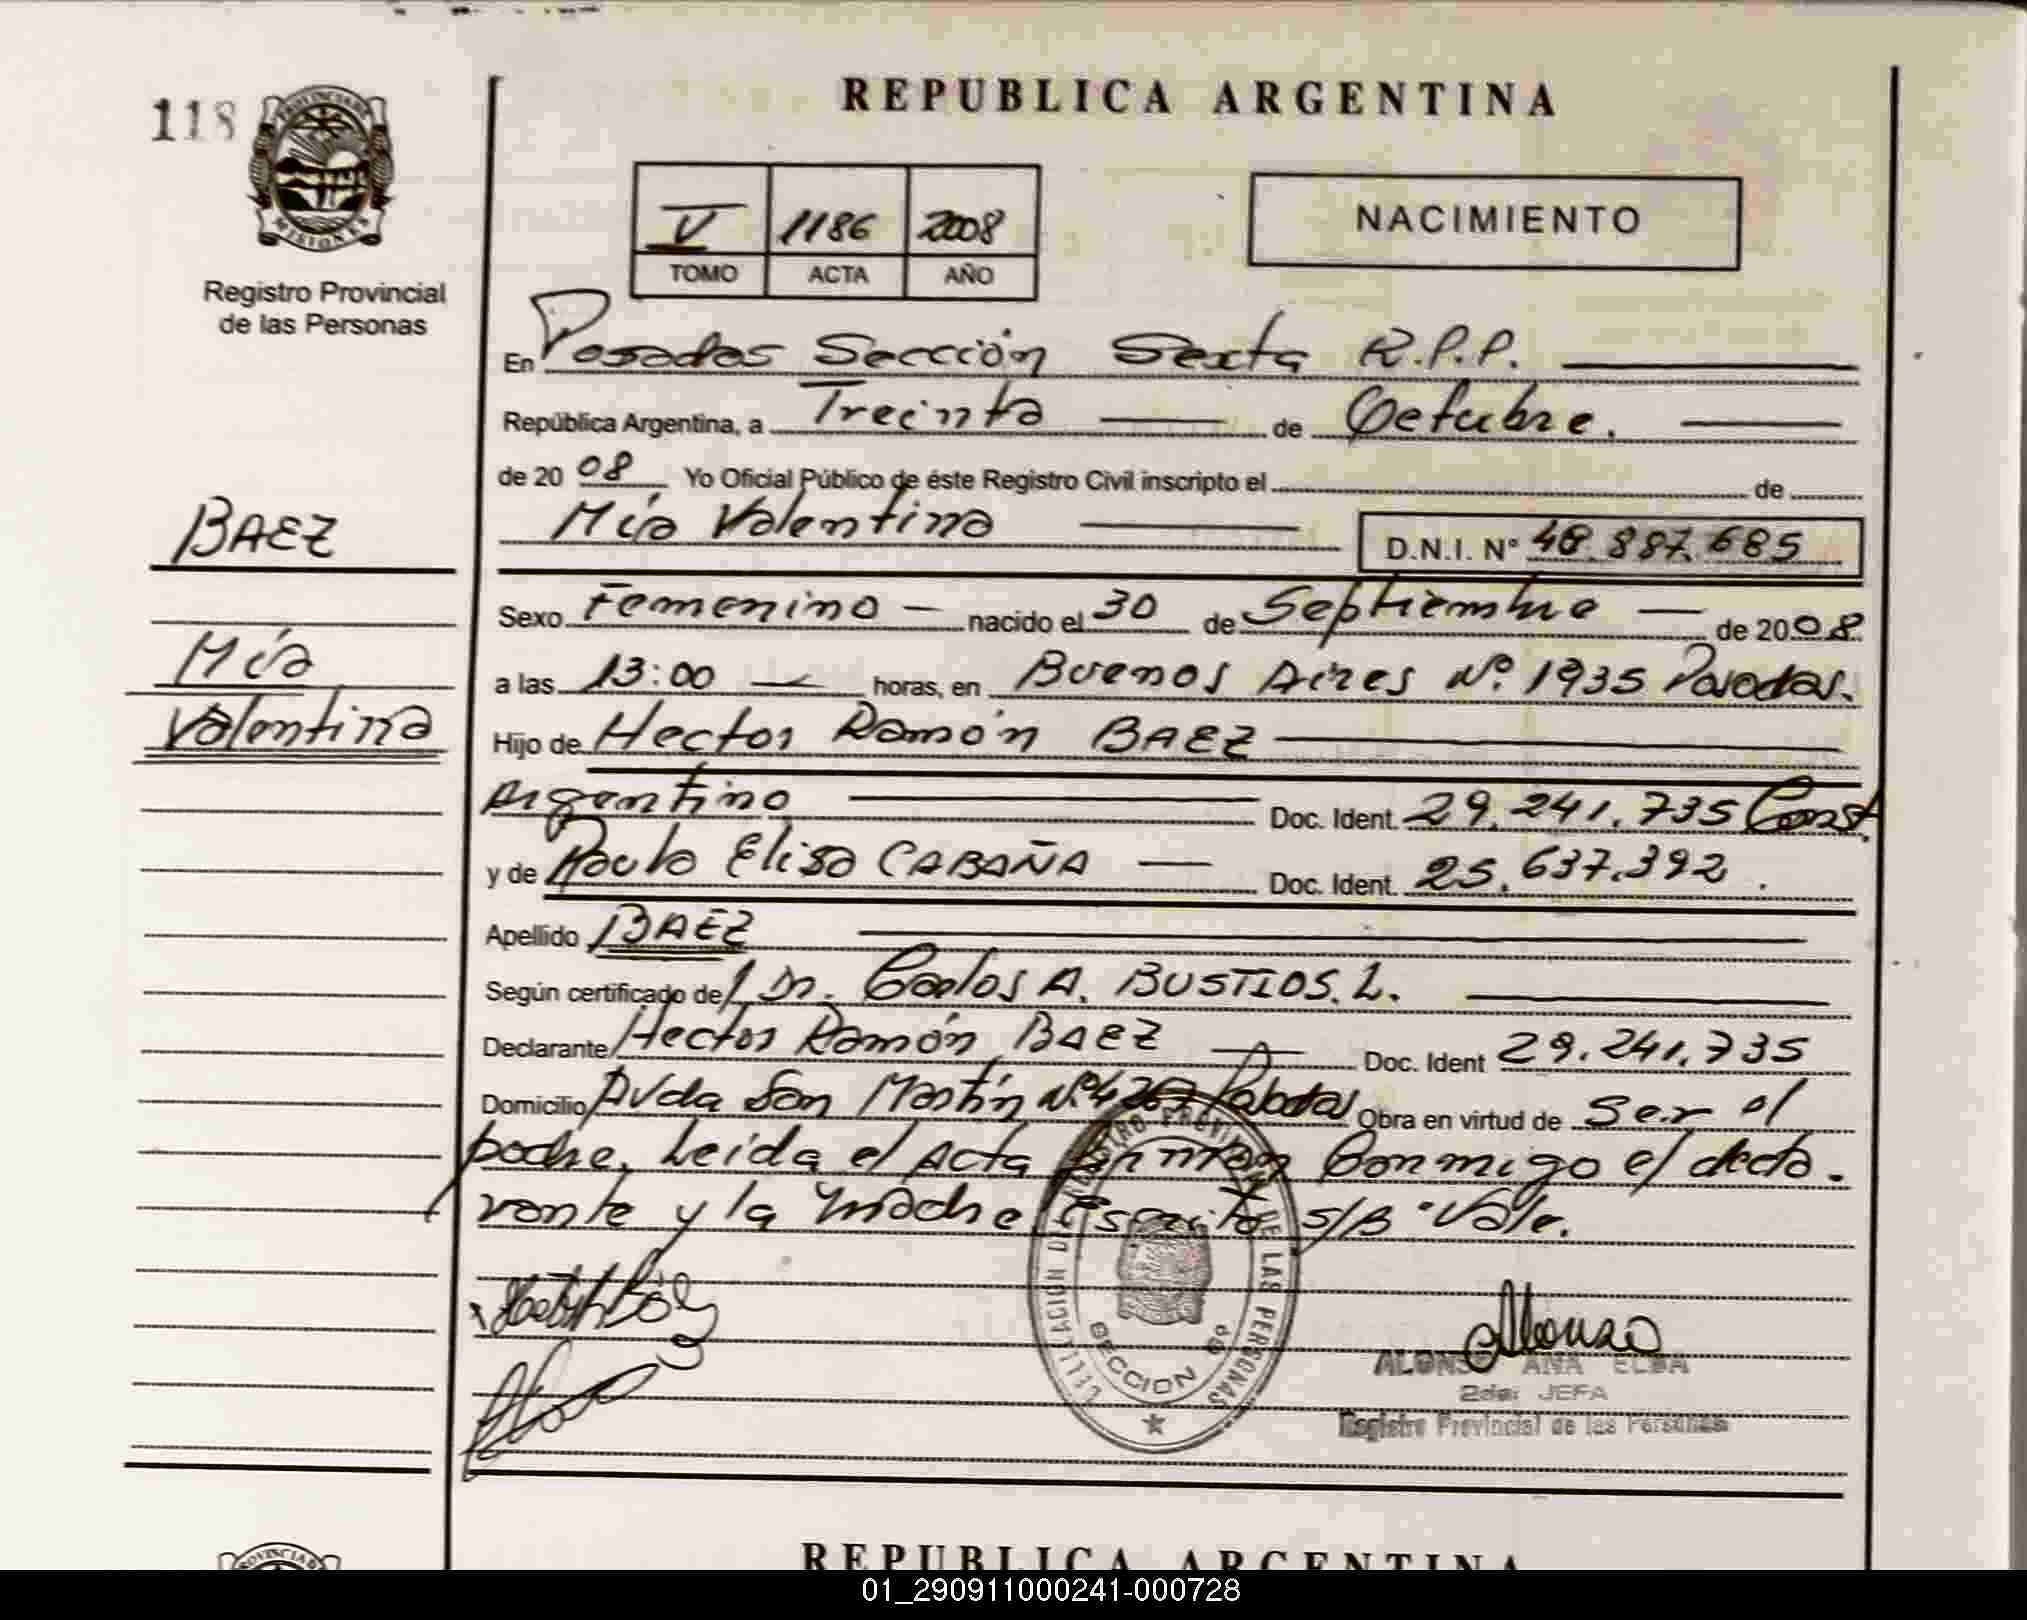 118
PROVINCIA DE
MISIONES
Registro Provincial
de las Personas
BAEZ
Mía
Valentina
REPUBLICA ARGENTINA
V 1186 2008
TOMO ACTA AÑO
NACIMIENTO
En Posadas Sección Sexta R.P.P.
República Argentina, a Treinta de Octubre.
de 20 08 Yo Oficial Público de éste Registro Civil inscripto el de
Mía Valentina D.N.I. Nº 48.887.685
Sexo Femenino nacido el 30 de Septiembre de 2008
a las 13:00 horas, en Buenos Aires Nº. 1935 Posadas.
Hijo de Hector Ramón BAEZ
Argentino Doc. Ident. 29.241.735 Const.
y de Paula Elisa CABAÑA Doc. Ident. 25.637.392.
Apellido BAEZ
Según certificado de Dr. Carlos A. BUSTIOS. L.
Declarante Hector Ramón BAEZ Doc. Ident 29.241.735
Domicilio Avda San Martín Nº Posadas Obra en virtud de Ser el
padre, Leida el Acta firman Conmigo el decla-
rante y la madre Escrito S/B "Vale.
REGISTRO PROVINCIAL DE LAS PERSONAS
SECCION 6º
ALONSO ANA ELBA
2da. JEFA
Registro Provincial de las Personas
PROVINCIA DE
REPUBLICA ARGENTINA
01_290911000241-000728